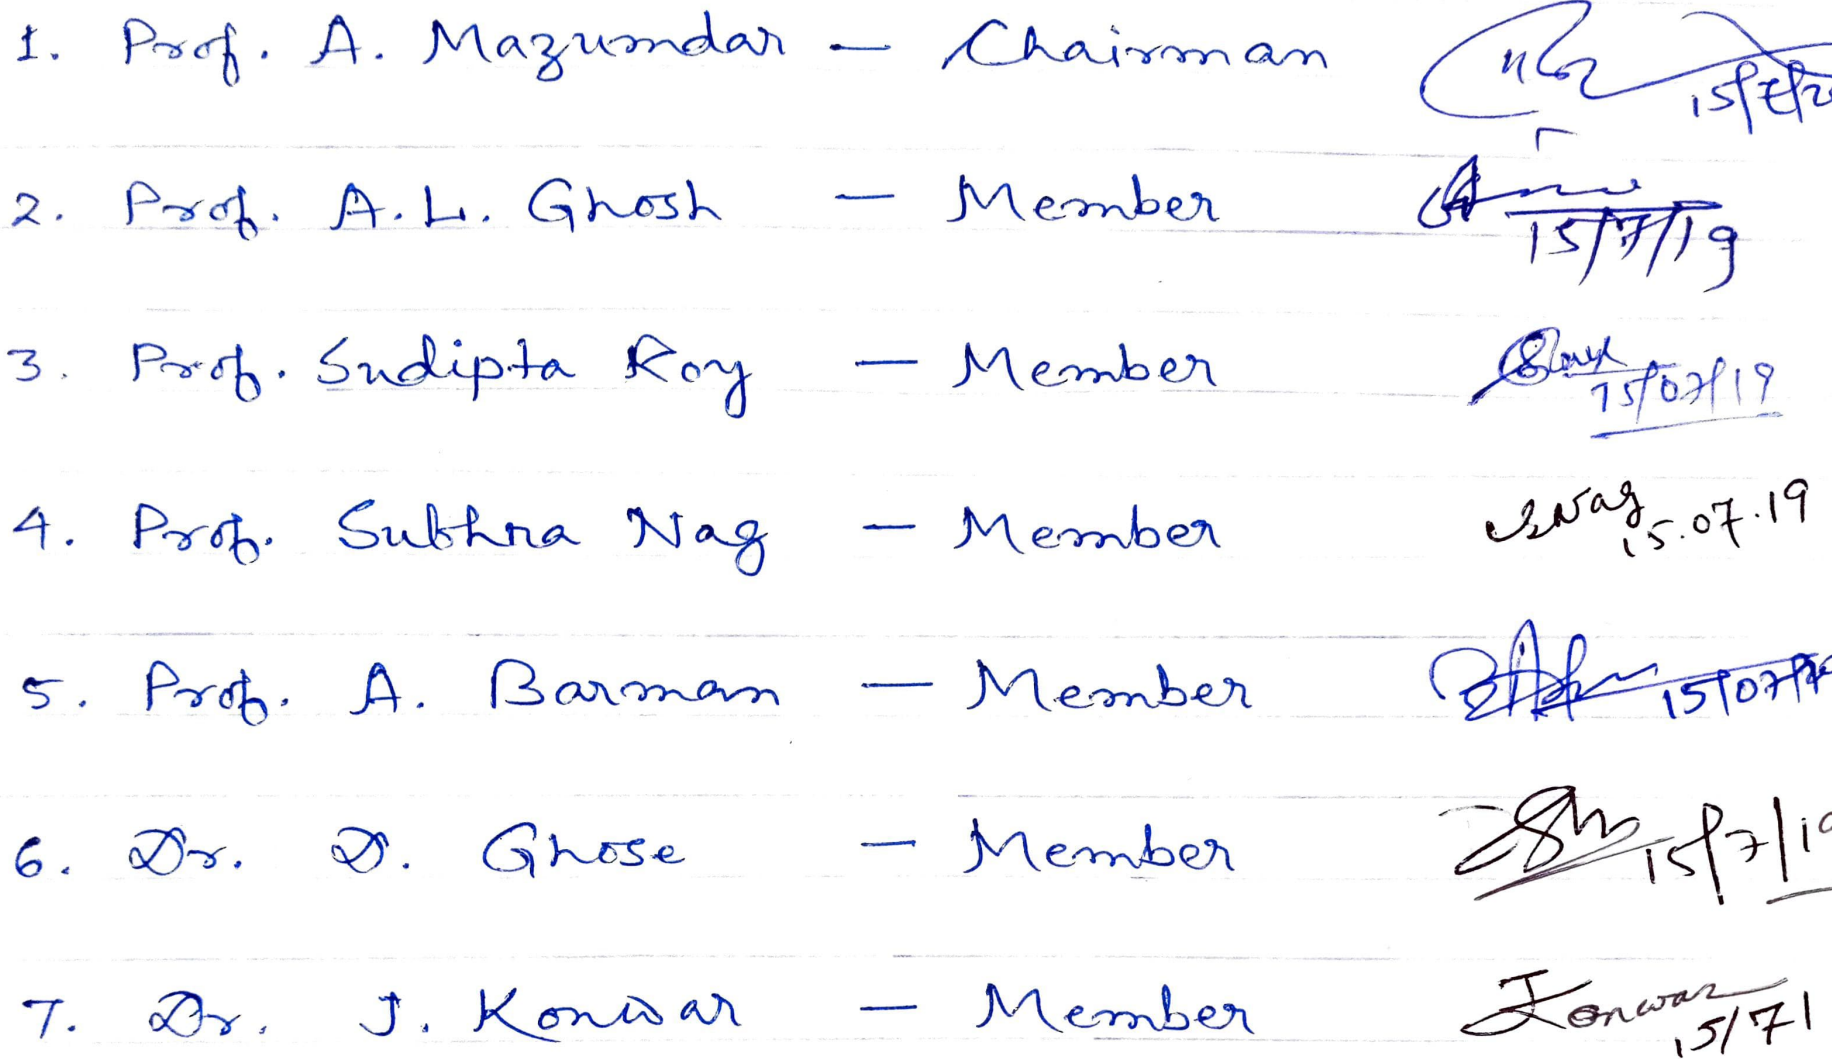 1. Prof. A. Mazumdar — Chairman
2. Prof. A.L. Ghosh — Member 15/7/19
3. Prof. Sudipta Roy — Member 15/07/19
4. Prof. Subhra Nag — Member SNag 15.07.19
5. Prof. A. Barman — Member 15/07/
6. Dr. D. Ghose — Member 15/7/19
7. Dr. J. Konwar — Member Jonwar 15/7/